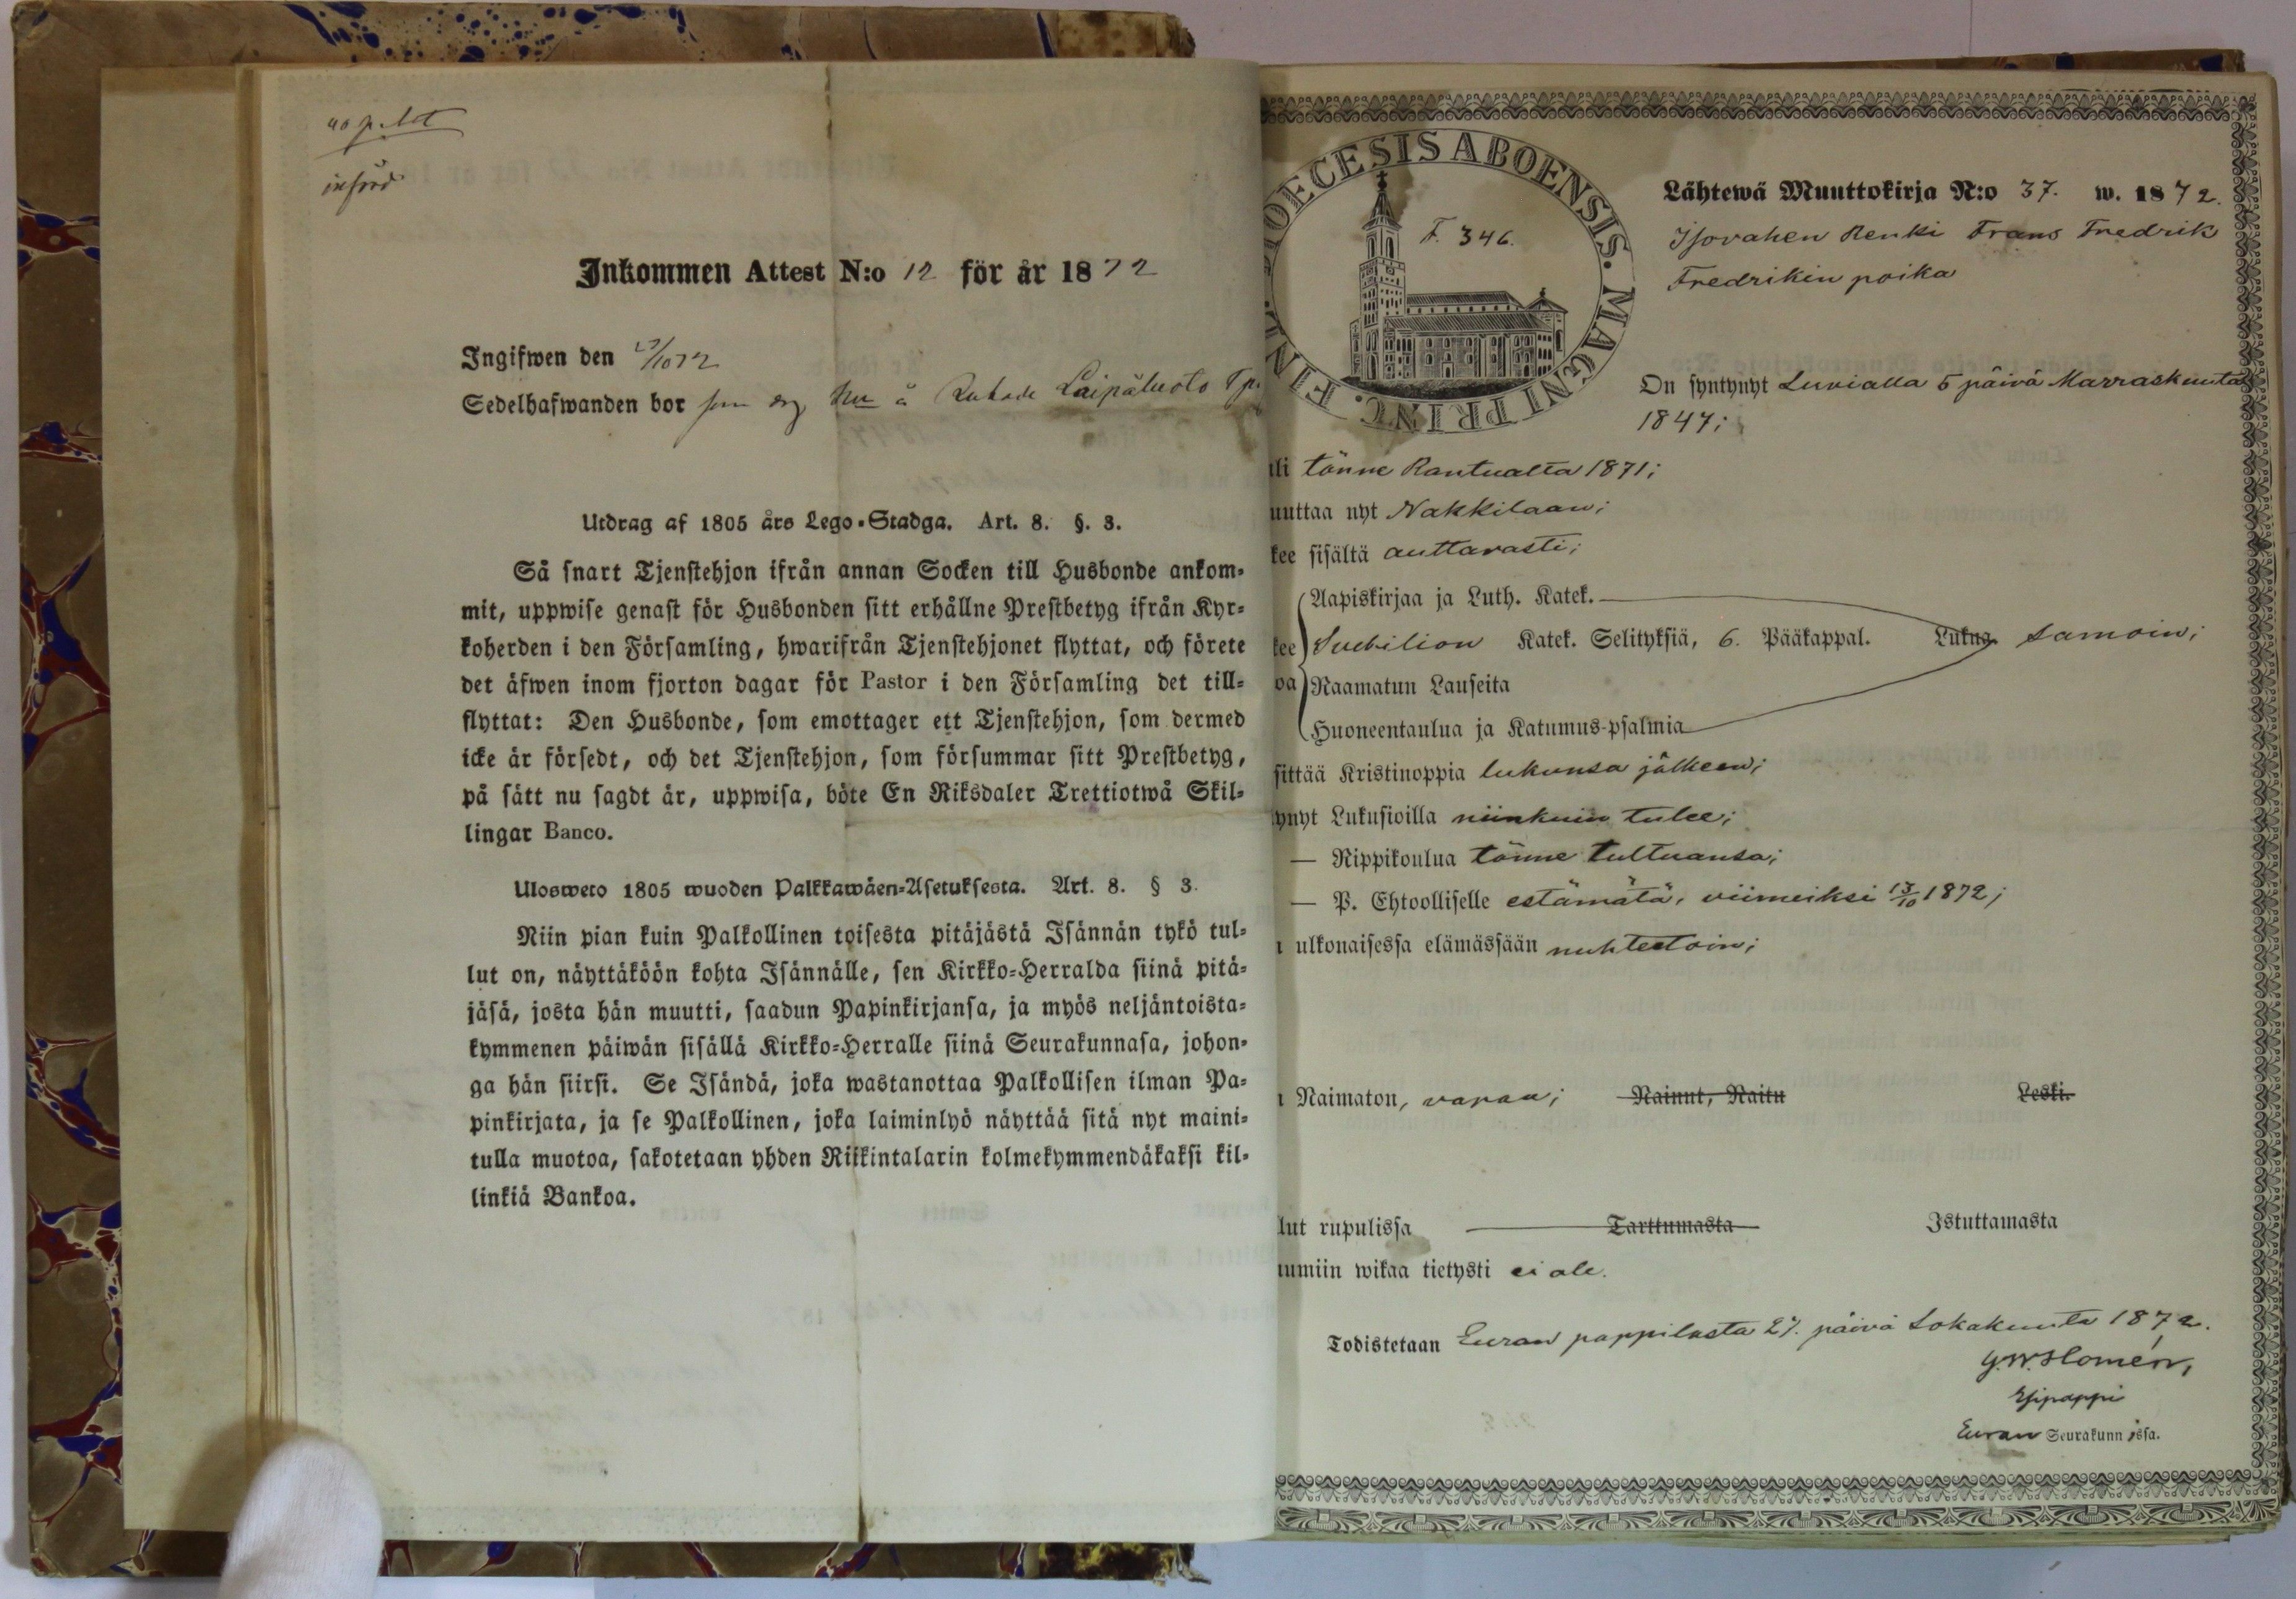 införd
Inkommen Attest N:o 12 för år 1872
Ingifwen den /10 72
Sedelhafwanden bor som å Laipäluoto
Utdrag af 1805 års Lego-Stadga. Art. 8. §. 3.
Så snart Tjenstehjon ifrån annan Socken till Husbonde ankom-
mit, uppwise genast för Husbonden sitt erhållne Prestbetyg ifrån Kyr-
koherden i den Församling, hwarifrån Tjenstehjonet flyttat, och förete
det äfwen inom fjorton dagar för Pastor i den Församling det till-
flyttat: Den Husbonde, som emottager ett Tjenstehjon, som dermed
icke är försedt, och det Tjenstehjon, som försummar sitt Prestbetyg,
på sätt nu sagdt är, uppwisa, böte En Riksdaler Trettiotwå Skil-
lingar Banco.
Ulosweto 1805 wuoden Palkkawäen-Asetuksesta. Art. 8. § 3.
Niin pian kuin Palkollinen toisesta pitäjästä Isännän tykö tul-
lut on, näyttäköön kohta Isännälle, sen Kirkko-Herralda siinä pitä-
jäsä, josta hän muutti, saadun Papinkirjansa, ja myös neljäntoista-
kymmenen päiwän sisällä Kirkko-Herralle siinä Seurakunnasa, johon-
ga hän siirsi. Se Isändä, joka wastanottaa Palkollisen ilman Pa-
pinkirjata, ja se Palkollinen, joka laiminlyö näyttää sitä nyt maini-
tulla muotoa, sakotetaan yhden Riikintalarin kolmekymmendäkaksi kil-
linkiä Bankoa.
DIOECESIS ABOENSIS. MAGNI PRINC. FINL.
F. 346.
Lähtewä Muuttokirja N:o 37. w. 1872.
Isovahen Renki Frans Fredrik
Fredrikin poika
On syntynyt Luvialla 5 päivä Marraskuuta
1847;
li tänne Rantualta 1871;
uuttaa nyt Nakkilaan;
kee sisältä auttavasti;
Aapiskirjaa ja Luth. Katek.
kee Svebilion Katek. Selityksiä, 6. Pääkappal. Lukua samoin;
oa Raamatun Lauseita
Huoneentaulua ja Katumus-psalmia
sittää Kristinoppia lukunsa jälkeen;
ynyt Lukusioilla niinkuin tulee;
— Rippikoulua tänne tultuansa;
— P. Ehtoolliselle estämätä, viimeiksi 13/10 1872;
ulkonaisessa elämässään nuhteetoin;
Naimaton, vapaa; Nainut, Naitu Leski.
lut rupulissa Tarttumasta Istuttamasta
umiin wikaa tietysti ei ole.
Todistetaan Euran pappilasta 27. päivä Lokakuuta 1872.
G.W. Homén,
Esipappi
Euran Seurakunnissa.